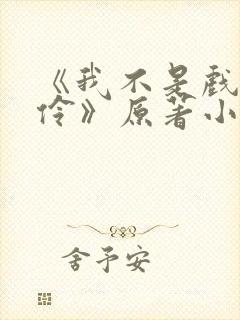 《我不是戏
伶》原著小
舍予安